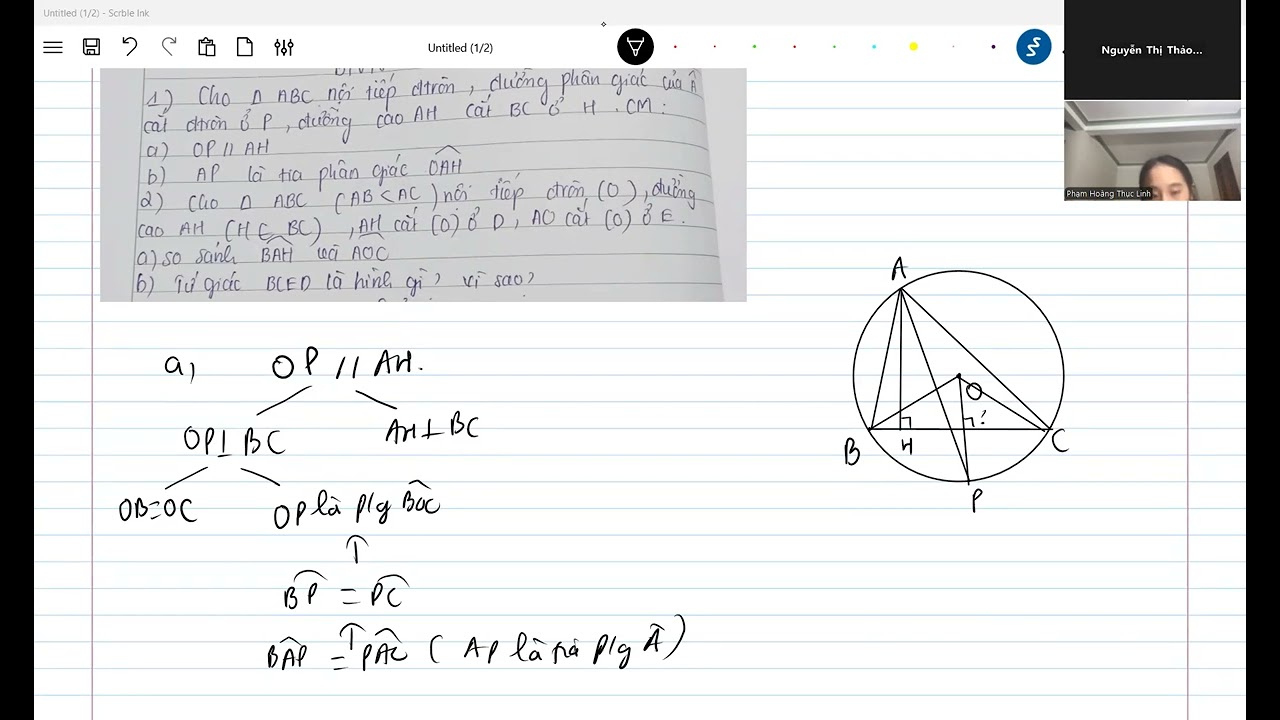 Untitled (1/2) - Scrble Ink
Untitled (1/2)
Nguyễn Thị Thảo...
Phạm Hoàng Thục Linh
1) Cho Δ ABC nội tiếp đtròn, đường phân giác của Â
cắt đtròn ở P, đường cao AH cắt BC ở H. CM:
a) OP // AH
b) AP là tia phân giác OAH
2) Cho Δ ABC (AB < AC) nội tiếp đtròn (O), đường
cao AH (H ∈ BC), AH cắt (O) ở D, AO cắt (O) ở E.
a) so sánh BAH và AOC
b) Tứ giác BCED là hình gì? vì sao?
a, OP // AH.
OP ⊥ BC
AH ⊥ BC
OB = OC
OP là p/g BOC
↑
BP = PC
↑
BAP = PAC (AP là tia p/g Â)
A
O
?
B
H
C
P